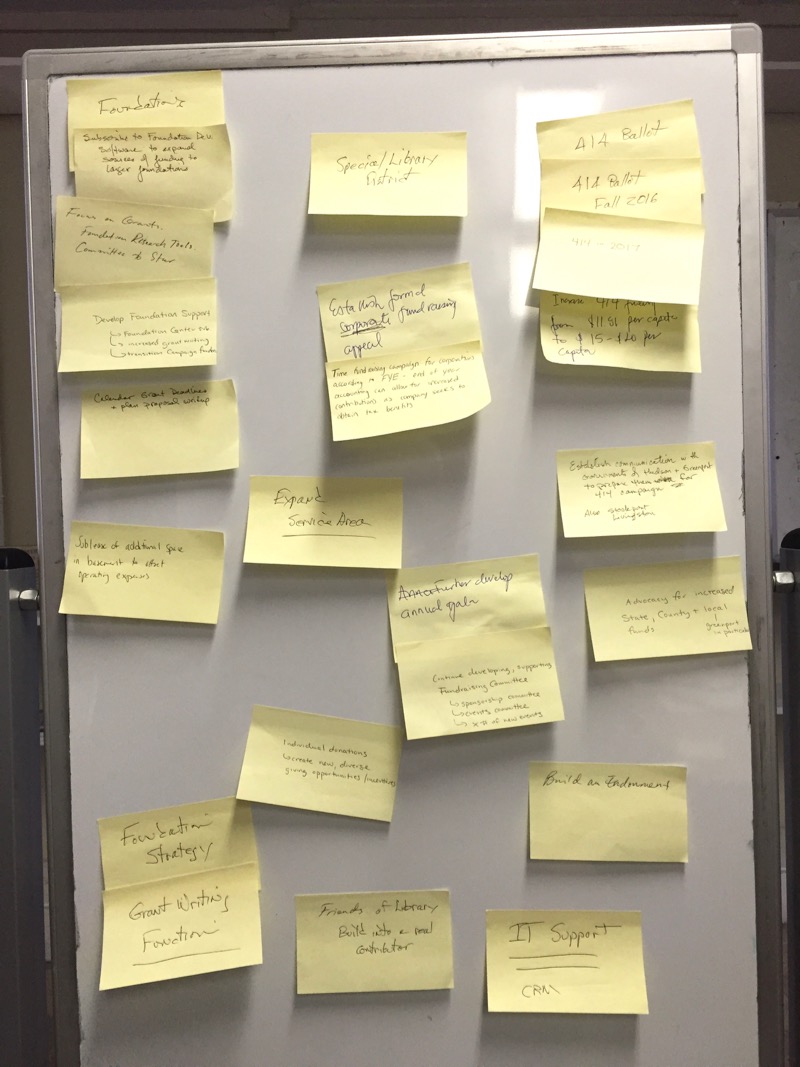 Foundations
Subscribe to Foundation Dev.
Software to expand
sources of funding to
larger foundations
Focus on Grants.
Foundation Research Tools
Committee to Steer
Develop Foundation Support
↳ Foundation Center
↳ increased grant writing
↳ transition Campaign
Calendar Grant Deadlines
+ plan proposal writeup
Sublease of additional space
in basement to offset
operating expenses
Special Library
District
Establish formal
corporate fundraising
appeal
Time fundraising campaign for corporations
according to FYE - end of year
accounting can allow for increased
contributions as company seeks to
obtain tax benefits
Expand
Service Area
Further develop
annual
Continue developing, supporting
Fundraising Committee
↳ sponsorship committee
↳ events committee
↳ of new events
Individual donations
↳ create new, diverse
giving opportunities/incentives
Foundation
Strategy
Grant Writing
Function
Friends of Library
Build into a real
contributor
414 Ballot
414 Ballot
Fall 2016
414 - 2017
Increase 414 funding
from $11.81 per capita
to $15-$20 per
capita
Establish communication with
of Hudson + Greenport
to prepare them for
414 campaign
Also Stockport
Livingston
Advocacy for increased
State, County + local
funds
greenport
in particular
Build an Endowment
IT Support
CRM